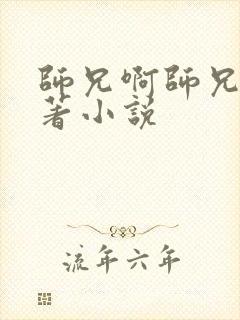 師兄啊師兄
著小説
流年六年